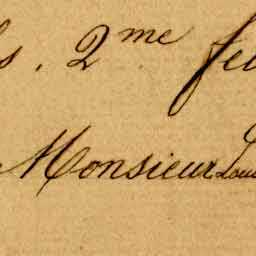 s. 2me feu
Monsieur Loui